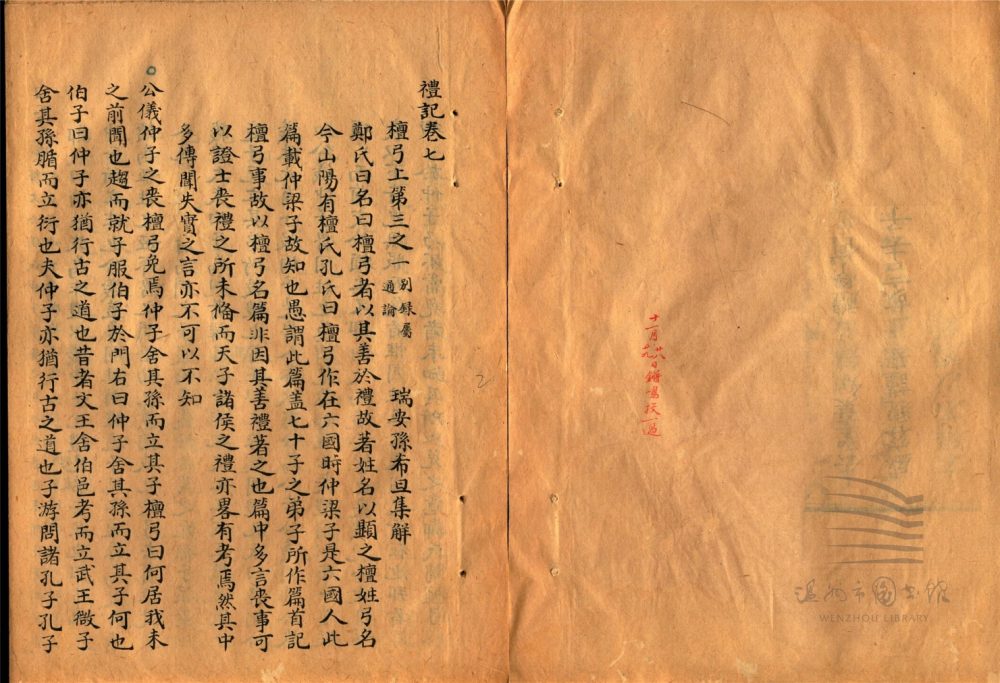 禮記卷七
檀弓上第三之一 别録屬通論 瑞安孫希旦集解
鄭氏曰名曰檀弓者以其善於禮故著姓名以顯之檀姓弓名
今山陽有檀氏孔氏曰檀弓作在六國時仲梁子是六國人此
篇載仲梁子故知也愚謂此篇蓋七十子之弟子所作篇首記
檀弓事故以檀弓名篇非因其善禮著之也篇中多言喪事可
以證士喪禮之所未備而天子諸侯之禮亦畧有考焉然其中
多傳聞失實之言亦不可以不知
公儀仲子之喪檀弓免焉仲子舍其孫而立其子檀弓曰何居我未
之前聞也趨而就子服伯子於門右曰仲子舍其孫而立其子何也
伯子曰仲子亦猶行古之道也昔者文王舍伯邑考而立武王微子
舍其孫腯而立衍也夫仲子亦猶行古之道也子游問諸孔子孔子
十一月
日
校一過
温州市图书馆
WENZHOU LIBRARY